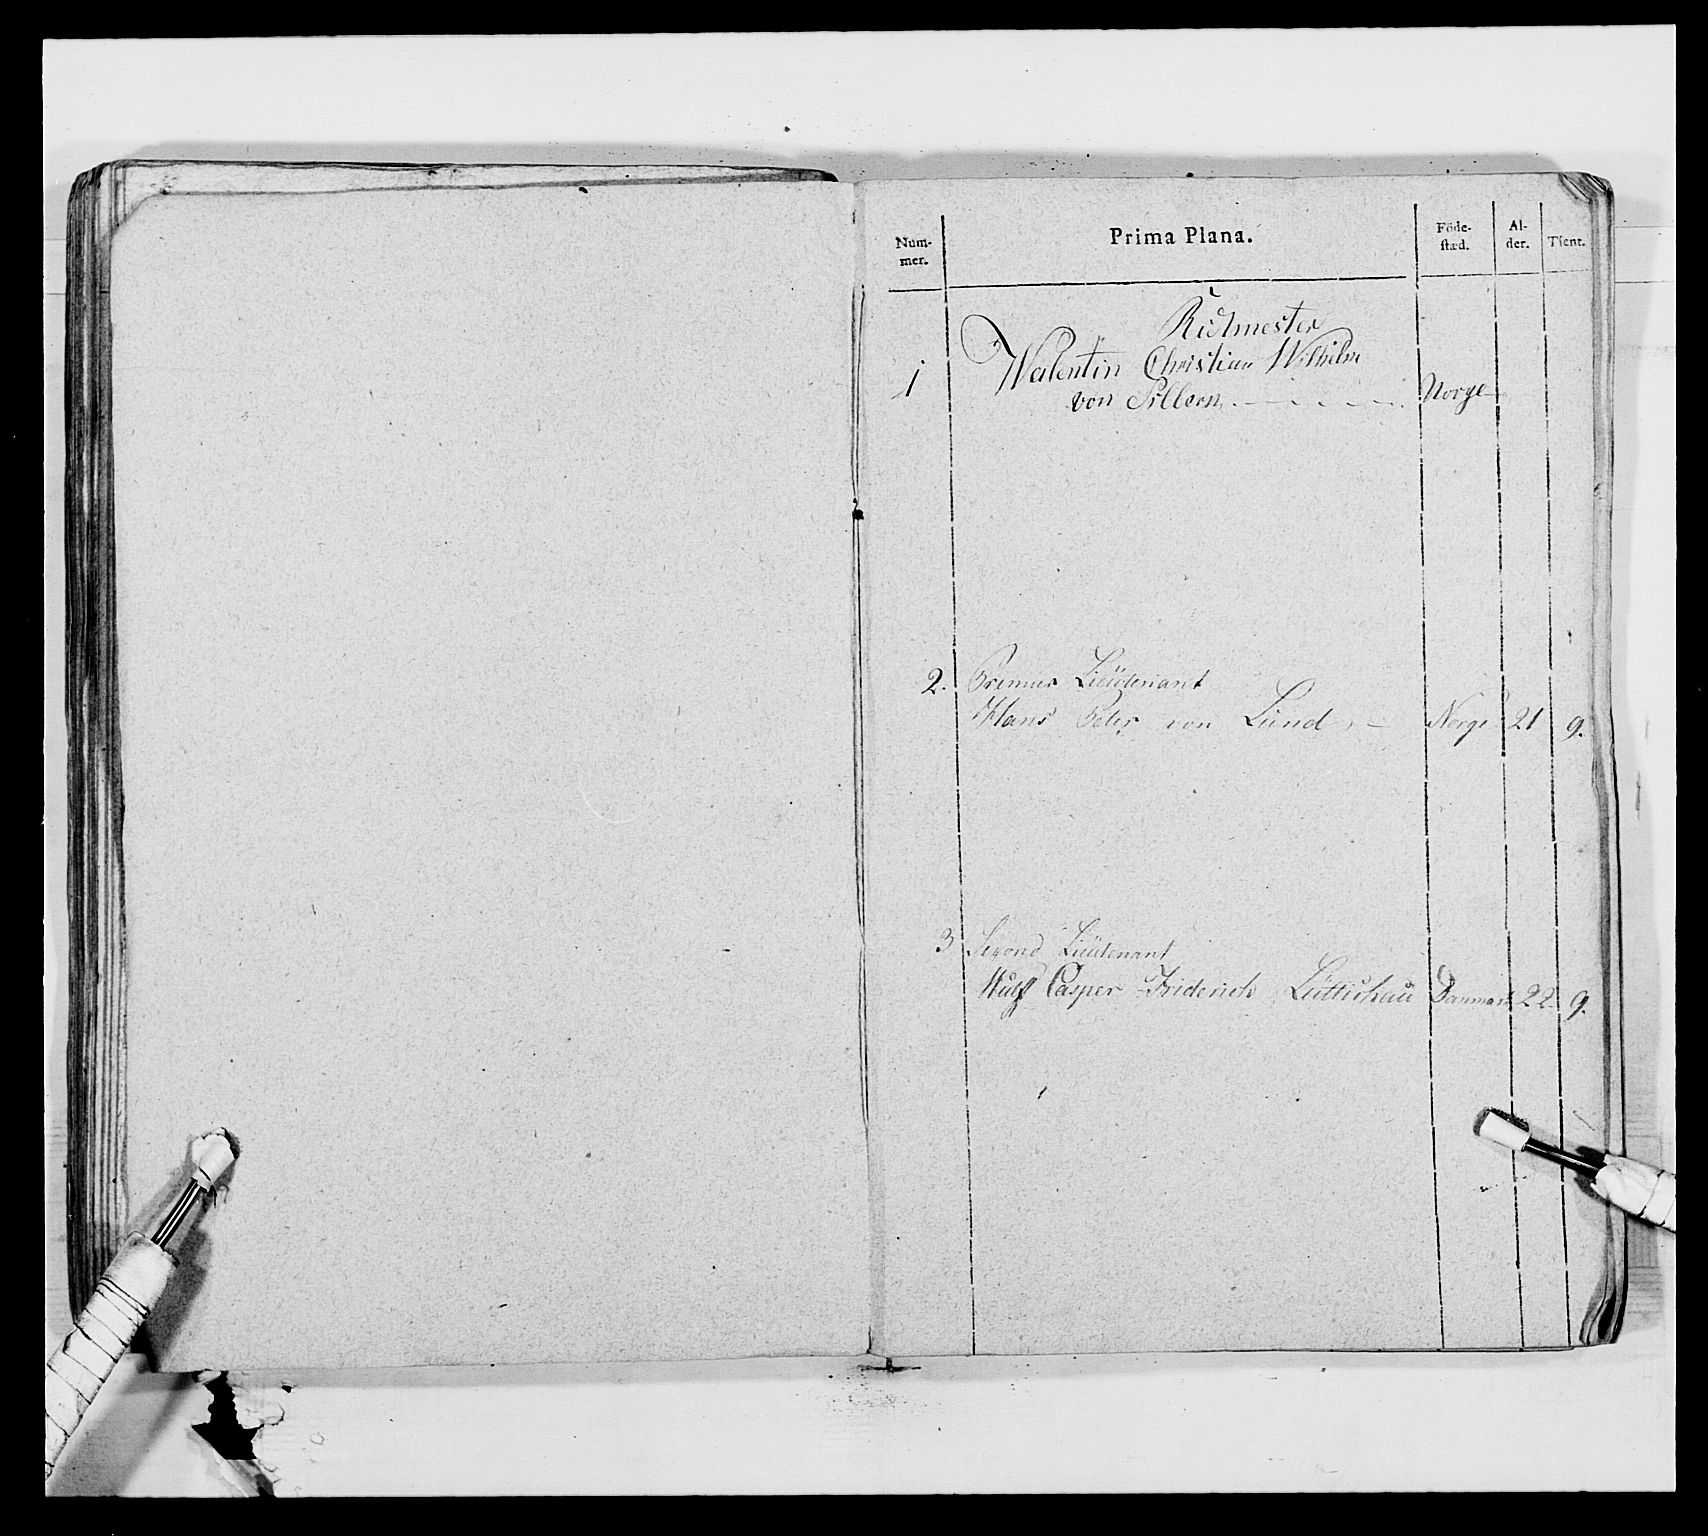 Num-
mer.
Prima Plana.
Föde-
stæd.
Al-
der.
Tient.
Ritmester
1 Walentin Christian Wilhelm
von Sillern Norge
2. Premier Lieütenant
Hans Peter von Lünd Norge 21 9.
3 Second Lieütenant
Wulf Casper Friderich Lüttichau Danmark 22 9.